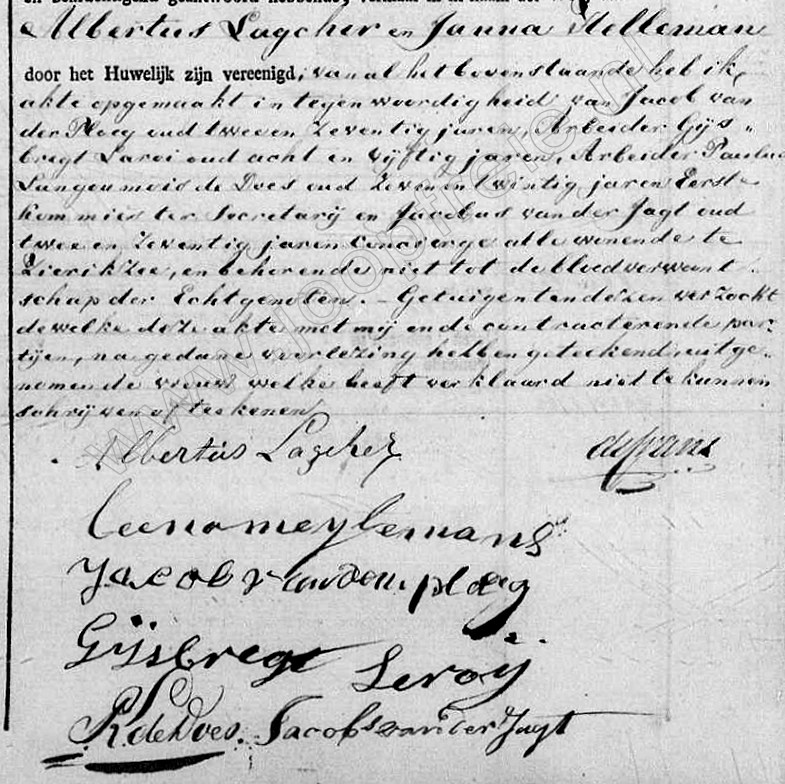 Albertus Lagcher en Janna Stelleman
door het Huwelijk zijn vereenigd, van al het bovenstaande heb ik
akte opgemaakt in tegenwoordigheid van Jacob van
der Ploeg oud twee en zeventig jaren, Arbeider Gijs-
bregt Laroi oud acht en vijftig jaren, Arbeider Paulus
Langeumois de Does oud zeven en twintig jaren Eerste
Kommies ter Secretarij en Jacobus van der Jagt oud
twee en zeventig jaren Concierge alle wonende te
Zierikzee, en behorende niet tot de bloedverwant-
schap der Echtgenoten. – Getuigen ten dezen verzocht
dewelke deze akte met mij en de contracterende par-
tijen, na gedane voorlezing hebben geteekend, uitge-
nomen de vrouw welke heeft verklaard niet te kunnen
schrijven of teekenen
Albertus Lagcher
Jacob van der ploeg
Gijsbregt Leroij
de Does. Jacobs van der Jagt
www.joopfrele.nl